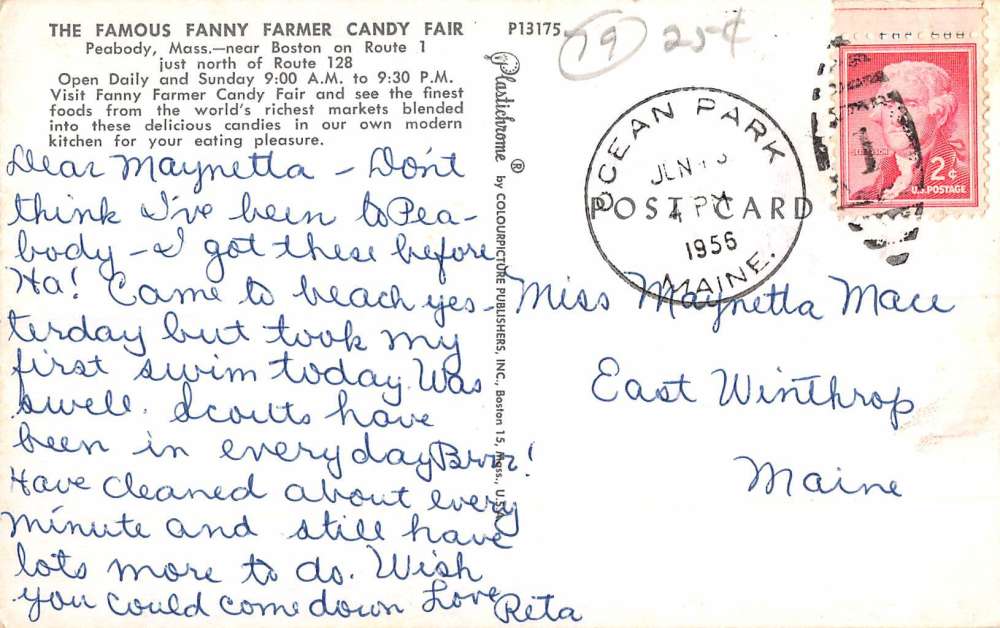 THE FAMOUS FANNY FARMER CANDY FAIR
Peabody, Mass.—near Boston on Route 1
just north of Route 128
Open Daily and Sunday 9:00 A.M. to 9:30 P.M.
Visit Fanny Farmer Candy Fair and see the finest
foods from the world's richest markets blended
into these delicious candies in our own modern
kitchen for your eating pleasure.
Dear Maynetta - Don't
think I've been to Pea-
body - I got these before
Ha! Came to beach yes-
terday but took my
first swim today. Was
swell. Scouts have
been in every day Brrr!
Have cleaned about every
minute and still have
lots more to do. Wish
you could come down Love
Reta
Plastichrome ® by COLOURPICTURE PUBLISHERS, INC., Boston 15, Mass., U.S.A.
P13175
19 25¢
OCEAN PARK
JUN
4 PM
1956
MAINE.
POST CARD
1
JEFFERSON
2¢
U.S. POSTAGE
Miss Maynetta Mace
East Winthrop
Maine